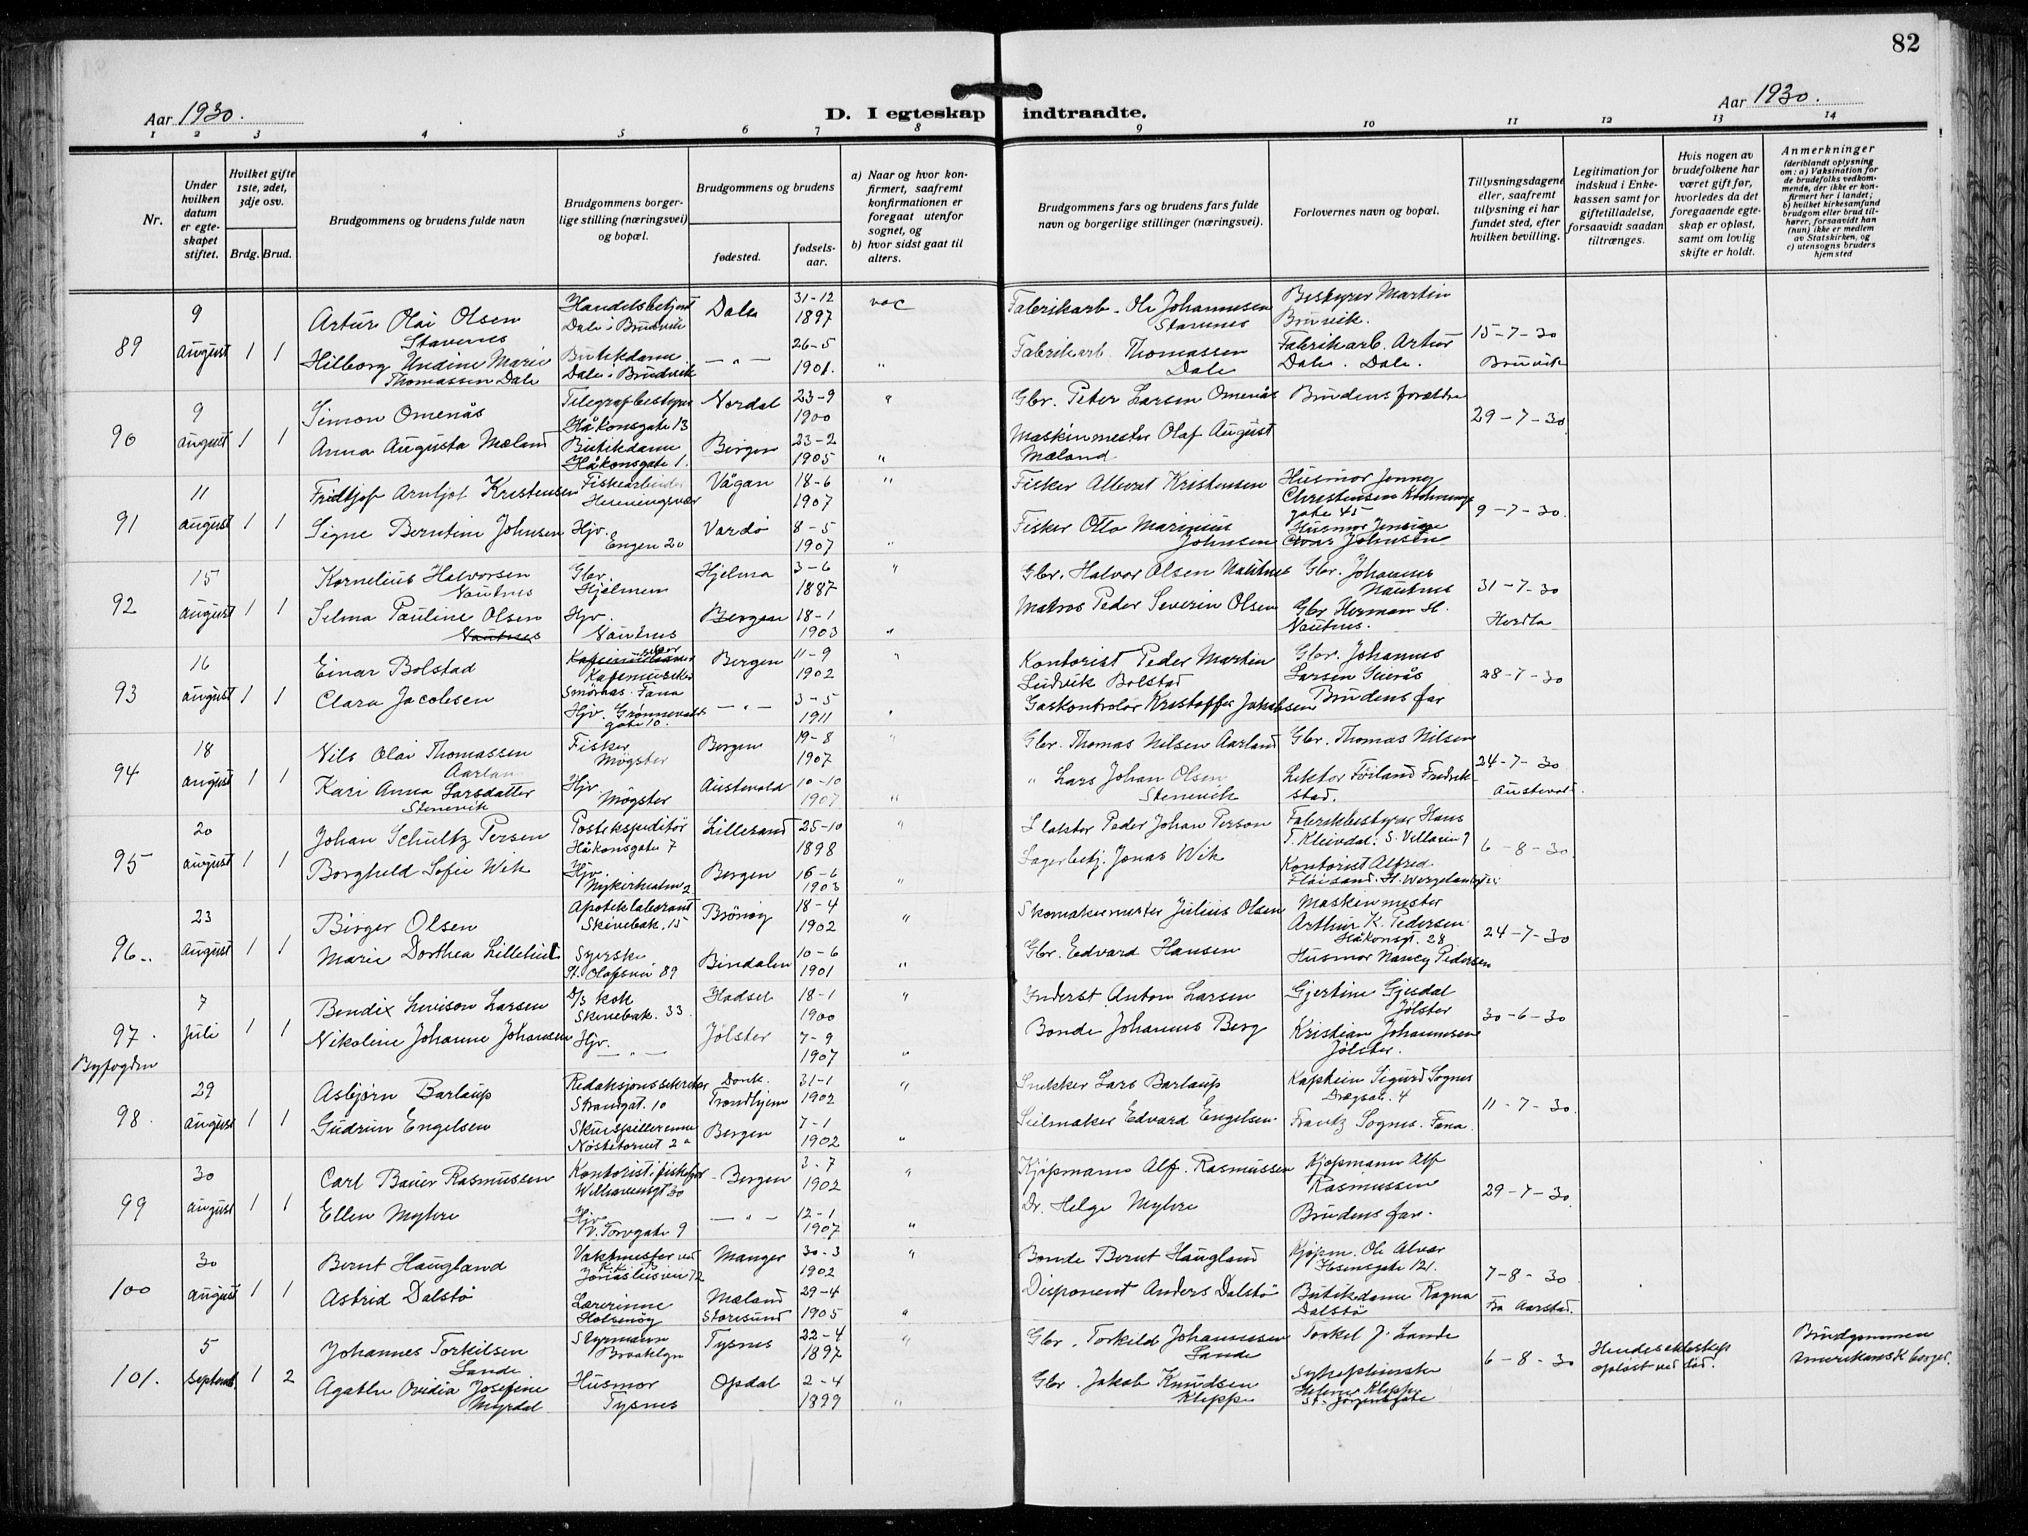 82
Aar 1930.
D. I egteskap indtraadte.
Aar 1930.
1 2 3 4 5 6 7 8 9 10 11 12 13 14
Nr.
Under hvilken datum er egteskapet stiftet.
Hvilket gifte 1ste, 2det, 3dje osv.
Brdg. Brud.
Brudgommens og brudens fulde navn
Brudgommens borgerlige stilling (næringsvei) og bopæl.
Brudgommens og brudens
fødested.
fødselsaar.
a) Naar og hvor konfirmert, saafremt konfirmationen er foregaat utenfor sognet, og
b) hvor sidst gaat til alters.
Brudgommens fars og brudens fars fulde navn og borgerlige stillinger (næringsvei).
Forlovernes navn og bopæl.
Tillysningsdagene eller, saafremt tillysning ei har fundet sted, efter hvilken bevilling.
Legitimation for indskud i Enkekassen samt for giftetilladelse, forsaavidt saadan tiltrænges.
Hvis nogen av brudefolkene har været gift før, hvorledes da det foregaaende egteskap er opløst, samt om lovlig skifte er holdt.
Anmerkninger
(deriblandt oplysning om: a) Vaksination for de brudefolks vedkommende, der ikke er konfirmert her i landet; b) hvilket kirkesamfund brudgom eller brud tilhører, forsaavidt han (hun) ikke er medlem av Statskirken, og c) utensogns bruders hjemsted
89 9 august 1 1
Artur Olai Olsen Stavenes
Handelsbetjent Dale i Bruvik
Dale 31-12 1897 vac
Fabrikarb. Ole Johannesen Stavenes
Bestyrer Martin Bruvik.
15-7-30 Bruvik
Hilborg Undine Marie Thomassen Dale
Butikdame Dale i Bruvik
— " — 26-5 1901. "
Fabrikarb. Thomassen Dale
Fabrikarb. Artur Dale. Dale.
90 9 august 1 1
Simon Omenås
Telegrafbestyrer Håkonsgate 13
Nordal 23-9 1900 "
Gbr. Peter Larsen Omenås
Brudens forældre
29-7-30
Anna Augusta Mæland
Butikdame Håkonsgate 1.
Bergen 23-2 1905 "
Maskinmester Olaf August Mæland
91 11 august 1 1
Fridtjof Arntjot Kristensen
Fiskearbeider Henningsvær
Vågan 18-6 1907 "
Fisker Kristensen
Husmor Jenny Christensen gate 45
9-7-30.
Signe Berntine Johnsen
Hjv. Engen 20
Vardø 8-5 1907 "
Fisker Otto Marinius Johnsen
Husmor Johnsen
92 15 august 1 1
Kornelius Halvorsen Nautnes
Gbr. Hjelmen
Hjelma 3-6 1887 "
Gbr. Halvor Olsen Nautnes
Gbr. Johannes Nautnes
31-7-30 Herdla
Selma Pauline Olsen Nautnes
Hjv. Nautnes
Bergen 18-1 1903 "
Matros Peder Severin Olsen
Gbr Herman H. Nautnes.
93 16 august 1 1
Einar Bolstad
Kafemusiker Smørås. Fana
Bergen 11-9 1902 "
Kontorist Peder Martin Ludvik Bolstad
Gbr. Johannes Larsen
28-7-30
Clara Jacobsen
Hjv. gate 10.
— " — 3-5 1911 "
Gaskontrolør Kristoffer Jakobsen
Brudens far
94 18 august 1 1
Nils Olai Thomassen Aarland
Fisker Møgster
Bergen 19-8 1907 "
Gbr. Thomas Nilsen Aarland
Gbr. Thomas Nilsen
24-7-30 Austevold
Kari Anna Larsdatter Stenevik
Hjv. Møgster
Austevold 10-10 1907 "
" Lars Johan Olsen Stenevik
Lektor Føiland Fredrikstad.
95 20 august 1 1
Johan Schultz Persen
Postekspeditør Håkonsgate 7
Lillesand 25-10 1898 "
Peder Johan Person
Fabrikbestyrer Hans T. Kleivdal.
6-8-30.
Borghild Sofie Wik
Hjv. Nykirkealm. 2
Bergen 16-6 1903 "
Lagerbetj. Jonas Wik
Kontorist Alfred
96. 23 august 1 1
Birger Olsen
Apoteklaborant Skivebak. 15
Brönöy 18-4 1902 "
Skomakermester Julius Olsen
Maskinmester Arthur K. Pedersen Håkonsgt. 28
24-7-30
Marie Dorthea Lillehiel
Syerske St. Olafsvei 89
Bindalen 10-6 1901 "
Gbr. Edvard Hansen
Husmor Nancy Pedersen
97. Byfogden 7 Juli 1 1
Bendix Levison Larsen
D/s kok Skivebak. 33
Hadsel 18-1 1900 "
Inderst Anton Larsen
Gjertine Gjesdal Jølster
30-6-30
Nikoline Johanne Johansen
Hjv. — " —
Jølster 7-9 1907 "
Bonde Johannes Berg
Kristian Johannesen Jølster.
98. 29 august 1 1
Asbjørn Barlaup
Redaksjonssekretær Strandgat. 10
Domk. Trondhjem 31-1 1902 "
Snekker Lars Barlaup
Kaptein Sigurd Sognes 4
11-7-30.
Gudrun Engelsen
Skuespillerinne Nøstetorvet 2a
Bergen 7-1 1902 "
Seilmaker Edvard Engelsen
Frantz Sognes. Fana.
99 30 august 1 1
Carl Bauer Rasmussen
Kontorist i fiskefor. Welhavensgt 30
Bergen 3-7 1902 "
Kjøpmann Alf. Rasmussen
Kjøpmann Alf Rasmussen
29-7-30.
Ellen Myhre
Hjv. V. Torvgate 9
— " — 12-1 1907 "
Dr. Helge Myhre
Brudens far.
100 30 august 1 1
Bernt Haugland
Vaktmester ved
Manger 30-3 1902 "
Bonde Bernt Haugland
Kjøpm. Ole Alvær Ibsensgate 121.
7-8-30 Fra Aarstad.
Astrid Dalstø
Lærerinne Holsenøy
Mæland Storesund 29-4 1905 "
Disponent Anders Dalstø
Butikdame Ragna Dalstø
101. 5 september 1 2
Johannes Torkilsen Lande
Styrmann Brooklyn
Tysnes 22-4 1897 "
Gbr. Torkild Johannessen Lande
Torkel J. Lande
6-8-30
Hendes ekteskap opløst ved død.
Brudgommen amerikansk borger.
Agathe Ovidia Josefine Myrdal
Husmor Tysnes
Opdal 2-4 1899 "
Gbr. Jakob Knudsen Kleppe
Sykepleierske Helene Kleppe St. Jørgensgate